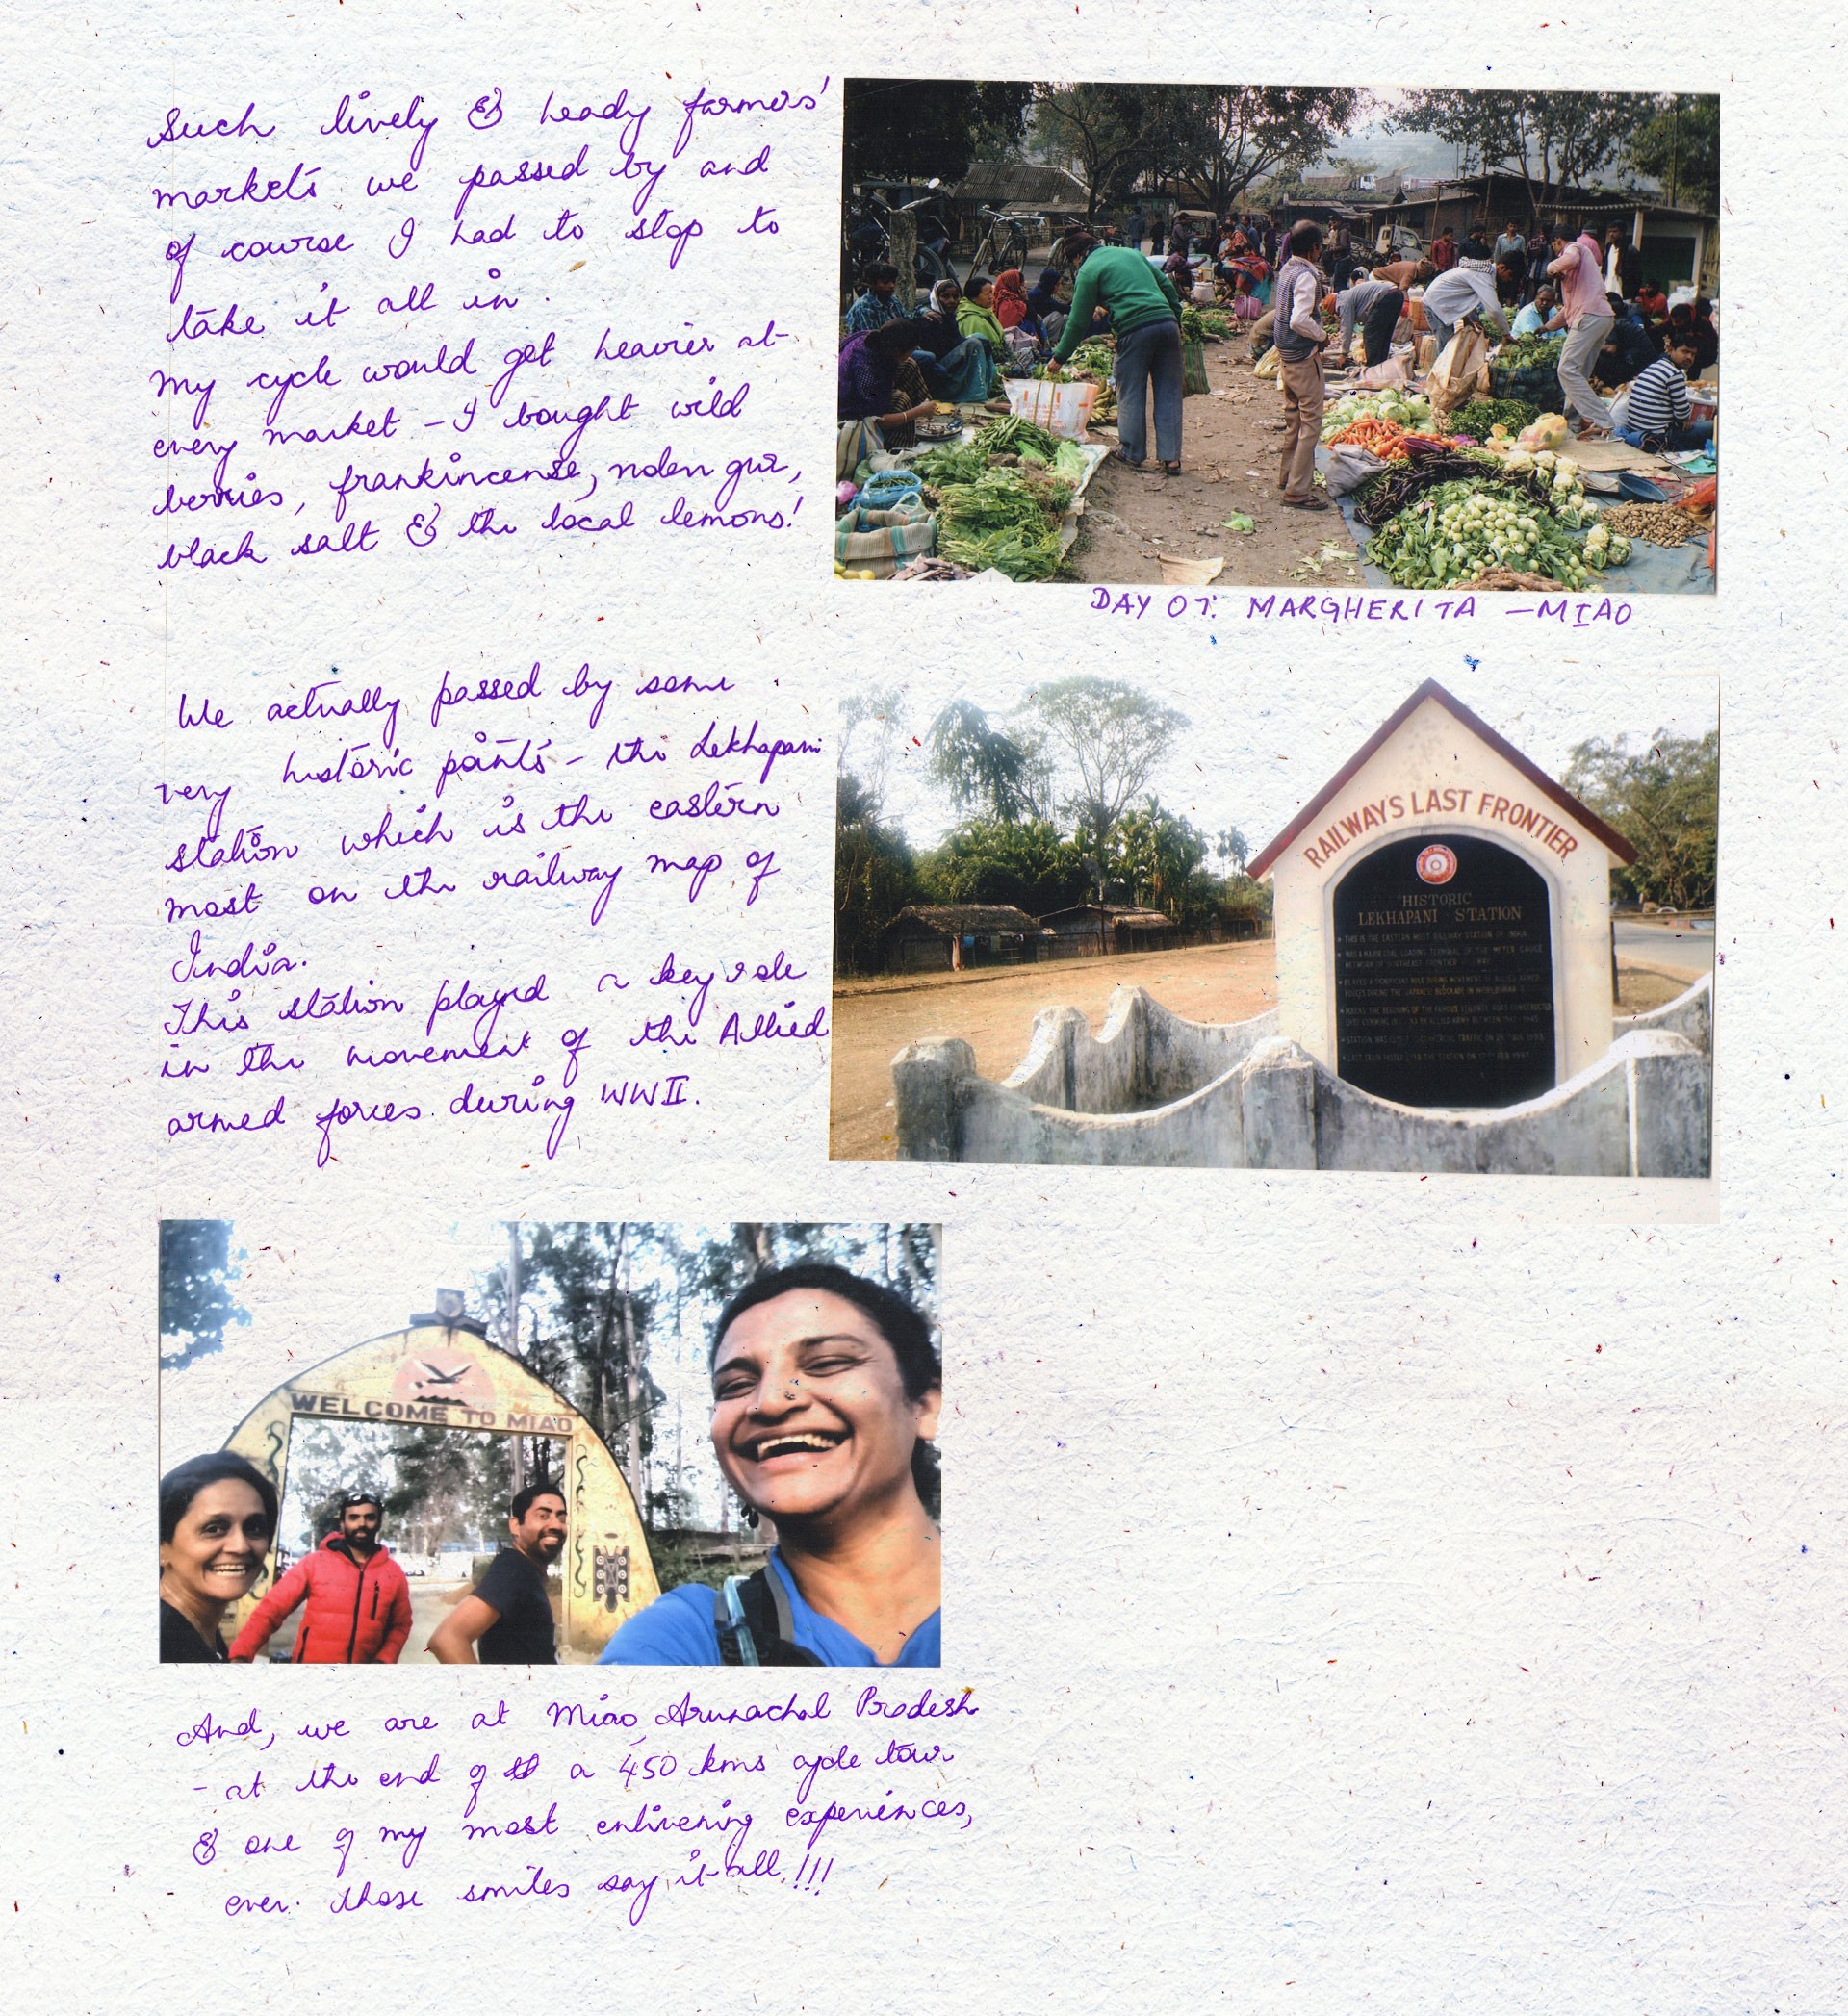 Such lively & heady farmers'
markets we passed by and
of course I had to stop to
take it all in.
My cycle would get heavier at
every market - I bought wild
berries, frankincense, nolen gur,
black salt & the local lemons!
DAY 07: MARGHERITA - MIAO
We actually passed by some
very historic points - the Lekhapani
station which is the eastern
most on the railway map of
India.
This station played a key role
in the movement of the Allied
armed forces during WWII.
RAILWAYS LAST FRONTIER
HISTORIC
LEKHAPANI STATION
THIS IS THE EASTERN MOST RAILWAY STATION OF INDIA
WELCOME TO MIAO
And, we are at Miao, Arunachal Pradesh
- at the end of a 450 kms cycle tour
& one of my most enlivening experiences,
ever. Those smiles say it all!!!